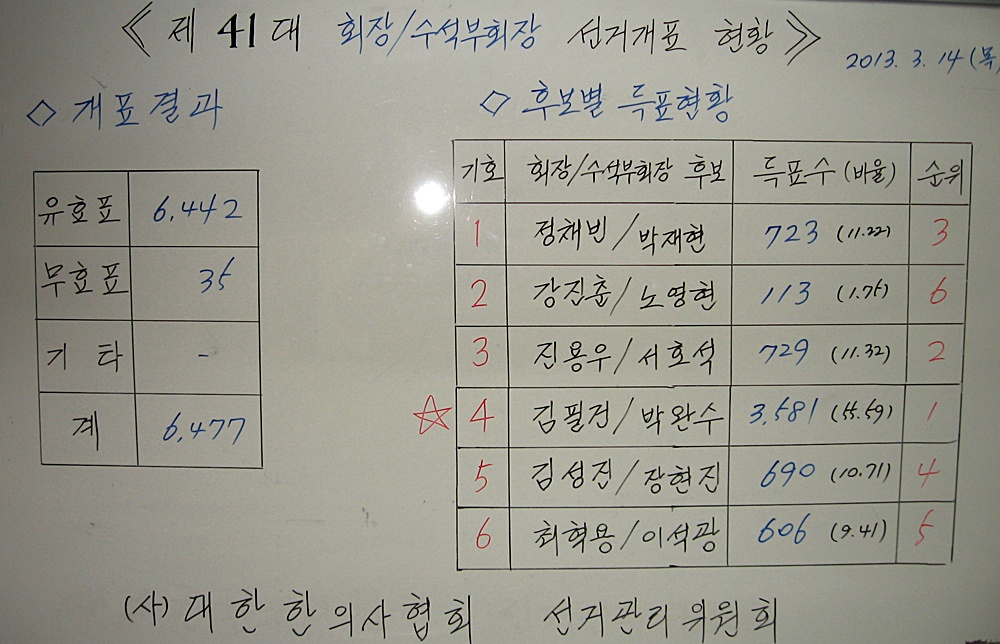 《제 41대 회장/수석부회장 선거개표 현황》
2013. 3. 14 (목)
◇ 개표결과
유효표 6,442
무효표 35
기 타 -
계 6,477
◇ 후보별 득표현황
기호 회장/수석부회장 후보 득표수 (비율) 순위
1 정채빈/박재현 723 (11.22) 3
2 강진춘/노영현 113 (1.75) 6
3 진용우/서호석 729 (11.32) 2
☆ 4 김필건/박완수 3,581 (55.59) 1
5 김성진/장현진 690 (10.71) 4
6 최혁용/이석광 606 (9.41) 5
(사)대한한의사협회 선거관리위원회